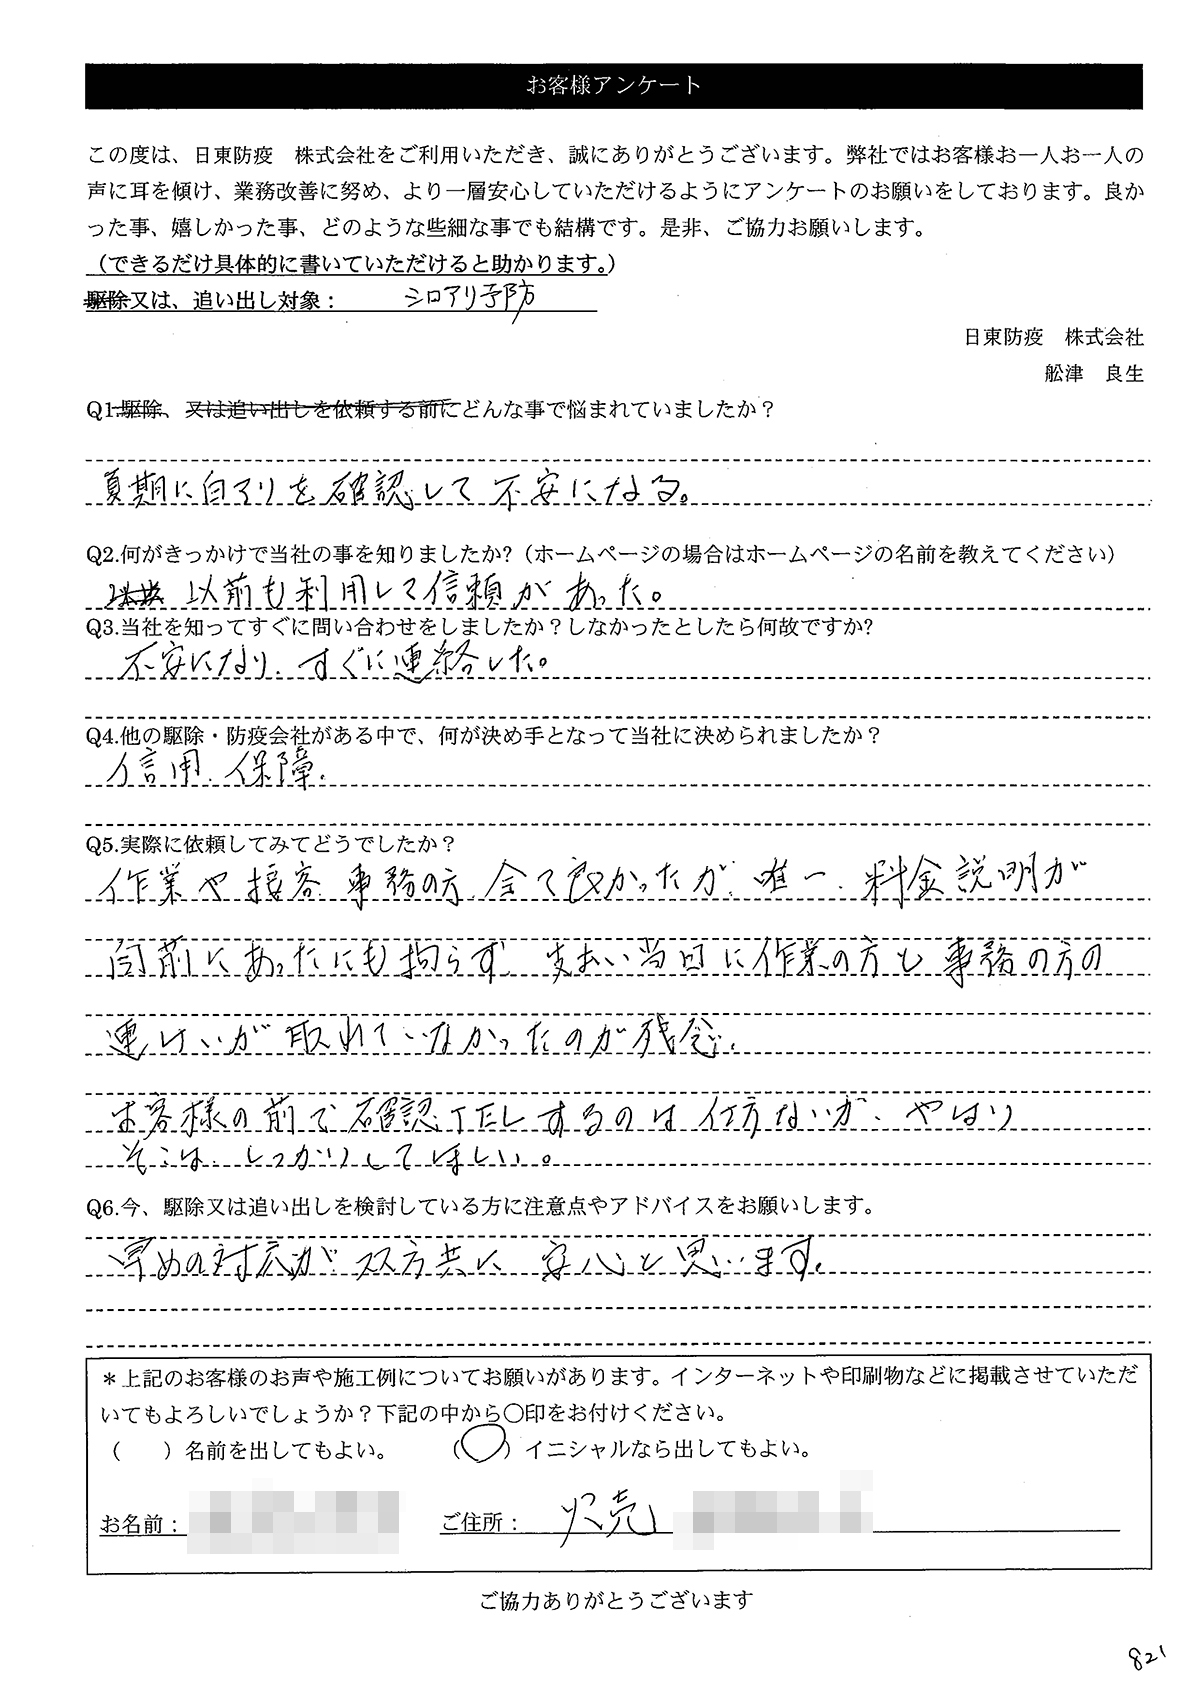 お客様アンケート
この度は、日東防疫　株式会社をご利用いただき、誠にありがとうございます。弊社ではお客様お一人お一人の
声に耳を傾け、業務改善に努め、より一層安心していただけるようにアンケートのお願いをしております。良か
った事、嬉しかった事、どのような些細な事でも結構です。是非、ご協力お願いします。
（できるだけ具体的に書いていただけると助かります。）
駆除又は、追い出し対象： シロアリ予防
日東防疫　株式会社
舩津　良生
Q1.駆除、又は追い出しを依頼する前にどんな事で悩まれていましたか？
夏期に白アリを確認して不安になる。
Q2.何がきっかけで当社の事を知りましたか?（ホームページの場合はホームページの名前を教えてください）
以前も利用して信頼があった。
Q3.当社を知ってすぐに問い合わせをしましたか？しなかったとしたら何故ですか?
不安になり、すぐに連絡した。
Q4.他の駆除・防疫会社がある中で、何が決め手となって当社に決められましたか？
信用、保障。
Q5.実際に依頼してみてどうでしたか？
作業や接客、事務の方、全て良かったが、唯一、料金説明が
前にあったにも拘らず、支払い当日に作業の方と事務の方の
連けいが取れていなかったのが残念。
お客様の前で確認TELするのは仕方ないが、やはり
そこは、しっかりしてほしい。
Q6.今、駆除又は追い出しを検討している方に注意点やアドバイスをお願いします。
早めの対応が双方共に安心と思います。
＊上記のお客様のお声や施工例についてお願いがあります。インターネットや印刷物などに掲載させていただ
いてもよろしいでしょうか？下記の中から〇印をお付けください。
（　　）名前を出してもよい。　　（〇）イニシャルなら出してもよい。
お名前：　　ご住所：
ご協力ありがとうございます
821